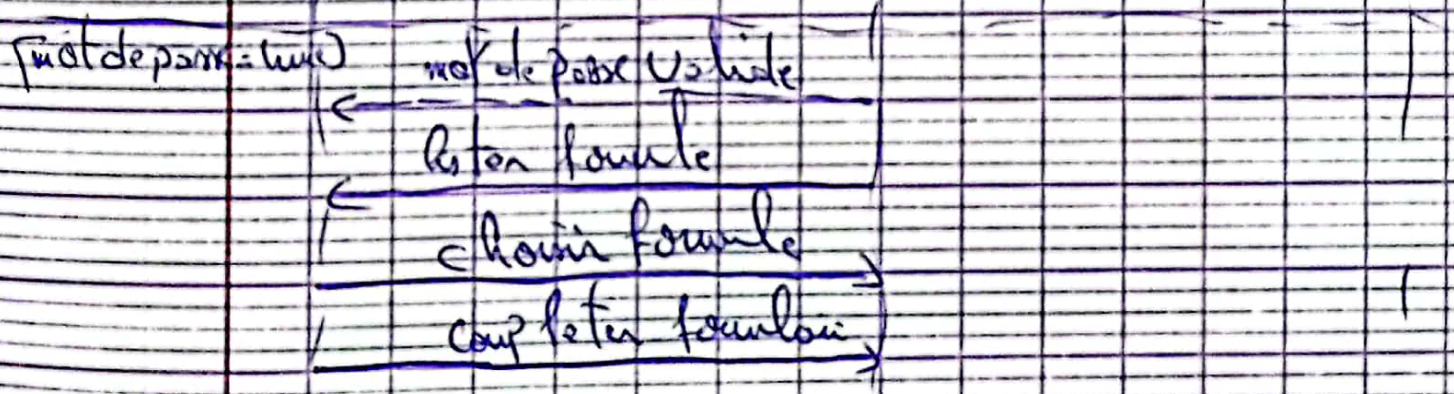 [mot de passe = true]
mot de passe valide
lister formule
choisir formule
completer formulai